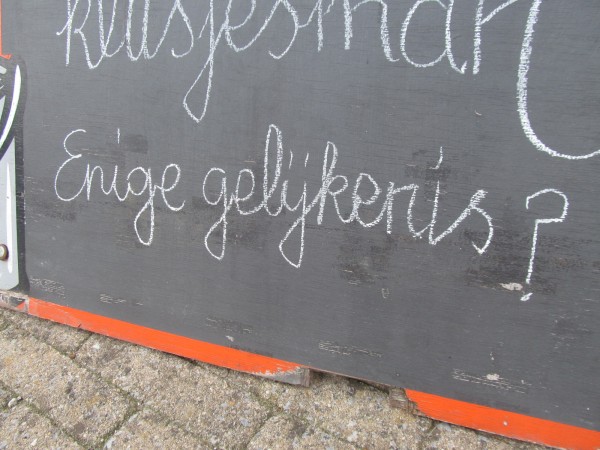 klusjesman
Enige gelijkenis?